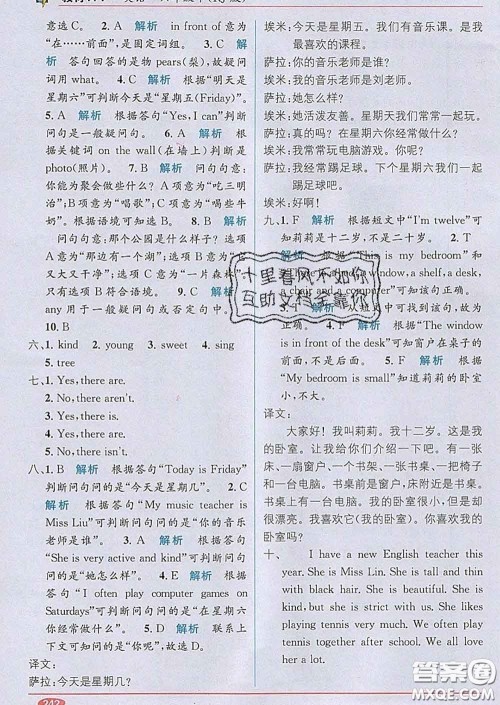 意选 C。 2. B 解析 in front of 意为“在……的前面”。
3. A 解析 答句回答的是物 pears(梨),故疑问
词用 what。 4. C 解析 根据“明天是
星期六”可判断今天是“星期五(Friday)”。
5. A 解析 根据答句“Yes, I can”判断
问句是一般疑问句。 6. A 解析 根
据关键词 on the wall(在墙上)可判断是
photo(照片)。 7. B 解析 问句句意:
你能为聚会做些什么? A 项意为“吃三明
治”;B 项意为“唱歌”;C 项意为“喝些牛
奶”。根据语境可知选 B。 8. B 解析
问句句意:那个公园是什么样子? A 选项
意为“那边有一个湖”;C 选项意为“它
又大又干净”;B 选项意为“一片森林”
选项 B 符合语境。
any 用于一般疑问句或否定句中。
10. B
六、1. kind 2. young 3. sweet 4. sing
5. tree
七、1. Yes, there are.
2. No, there aren't.
3. Yes, there is.
4. Yes, there are.
5. No, there isn't.
八、1. B 解析 根据答句“Today is Friday”
判断问句问的是“今天是星期几”。 2. C
解析 根据答句“My music teacher is
Miss Liu”可判断问句问的是“你的音乐
老师是谁”。 3. D 解析 根据答句
“She is very active and kind”可判断问句
问的是“她怎么样”。 4. E 解析 根据
答句“I often play computer games on
Saturdays”可判断问句问的是“在星期六
你经常做什么”。 5. A 解析 联系上
下文可知此处意为“真的吗”。故选 A。
译文:
萨拉:今天是星期几?
242
埃米:今天是星期五。我有音乐课,是我最
喜欢的课程。
萨拉:你的音乐老师是谁?
埃米:我的音乐老师是刘老师。
萨拉:她怎么样?
埃米:她活泼友善。星期六我们常常一起玩。
萨拉:真的吗?在星期六你经常做什么?
埃米:我常常玩电脑游戏。你们呢?
萨拉:我经常踢足球。下个星期六我们一起
踢足球吧。
埃米:好啊!
九、1. F 解析 根据短文中“I'm twelve”可
知莉莉是十二岁,不是二十岁。 2. T
解析 根据“This is my bedroom”和
window, a shelf, a desk,
a chair and a computer”可知该句正确。
文中可找到该句,故为
正确。 4. F 解析 根据“The window
is in front of the desk”可知窗户在桌子的
前面,而不是后面。 5. F 解析 根据
“My bedroom is small”可知莉莉的卧室
小,不大。
译文:
大家好!我叫莉莉。我十二岁。这是我
的卧室。让我给你们介绍一下吧。有一张
床、一扇窗户、一个书架、一张书桌、一把椅子
和一台电脑。窗户在书桌前,床附近是书桌。
书桌上有一台电脑。我的卧室很小,但是却
很漂亮。我喜欢它(我的卧室)。你喜欢我的
卧室吗?
十、 I have a new English teacher this
year. She is Miss Lin. She is tall and thin
with black hair. She is beautiful. She is
kind, but she is strict with us. She likes
playing tennis very much. We often play
tennis together after school. We all like
her a lot.
十里春风不如你
互助文档全靠你
答案圈
MXQE.COM